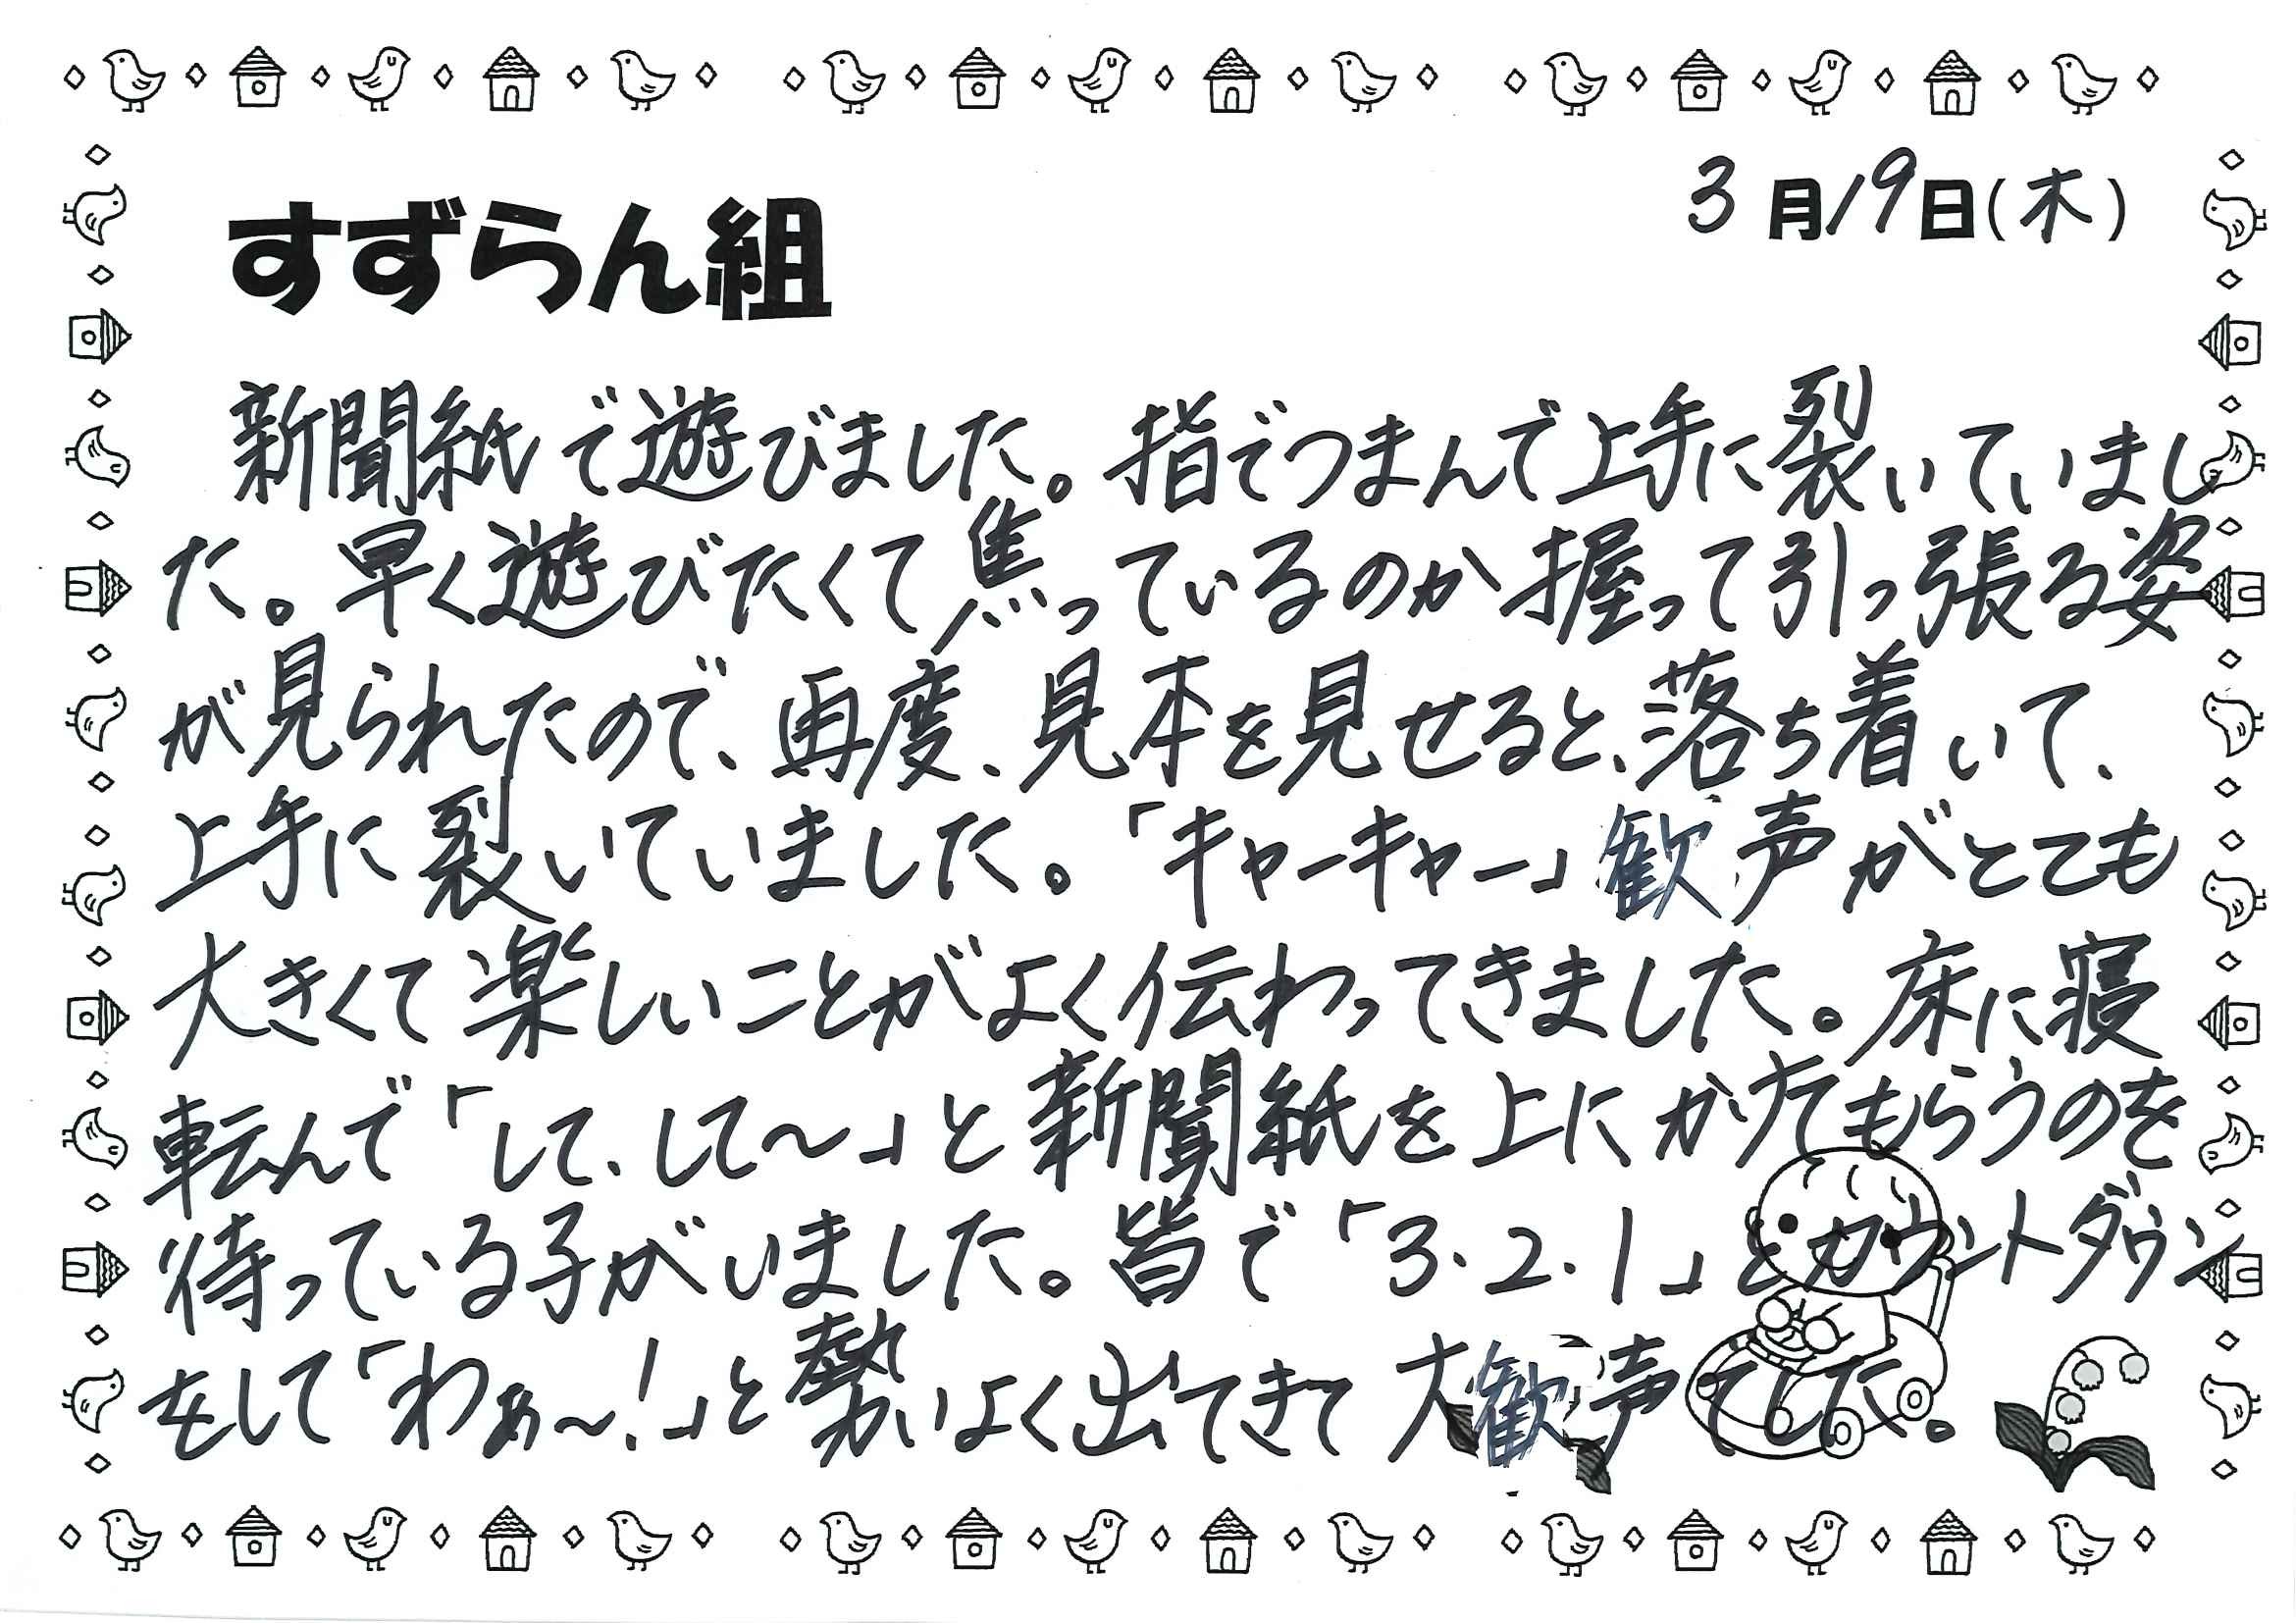 3月19日(木)
すずらん組
新聞紙で遊びました。指でつまんで上手に裂いていまし
た。早く遊びたくて焦っているのか握って引っ張る姿
が見られたので、再度、見本を見せると、落ち着いて、
上手に裂いていました。「キャーキャー」歓声がとても
大きくて楽しいことがよく伝わってきました。床に寝
転んで「して、して〜」と新聞紙を上にかけてもらうのを
待っている子がいました。皆で「3・2・1」とカウントダウン
をして「わぁ〜!」と勢いよく出てきて大歓声でした。